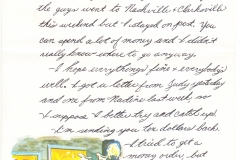 the guys went to Nashville & Clarksville
this weekend but I stayed on post. You
can spend a lot of money and I didn't
really know where to go anyway.
- I hope everything's fine & everybody's
well. I got a letter from Judy yesterday
and one from Nadine last week, so
I suppose I better try and catch up.
- I'm sending you ten dollars back.
I tried to get a
money order but